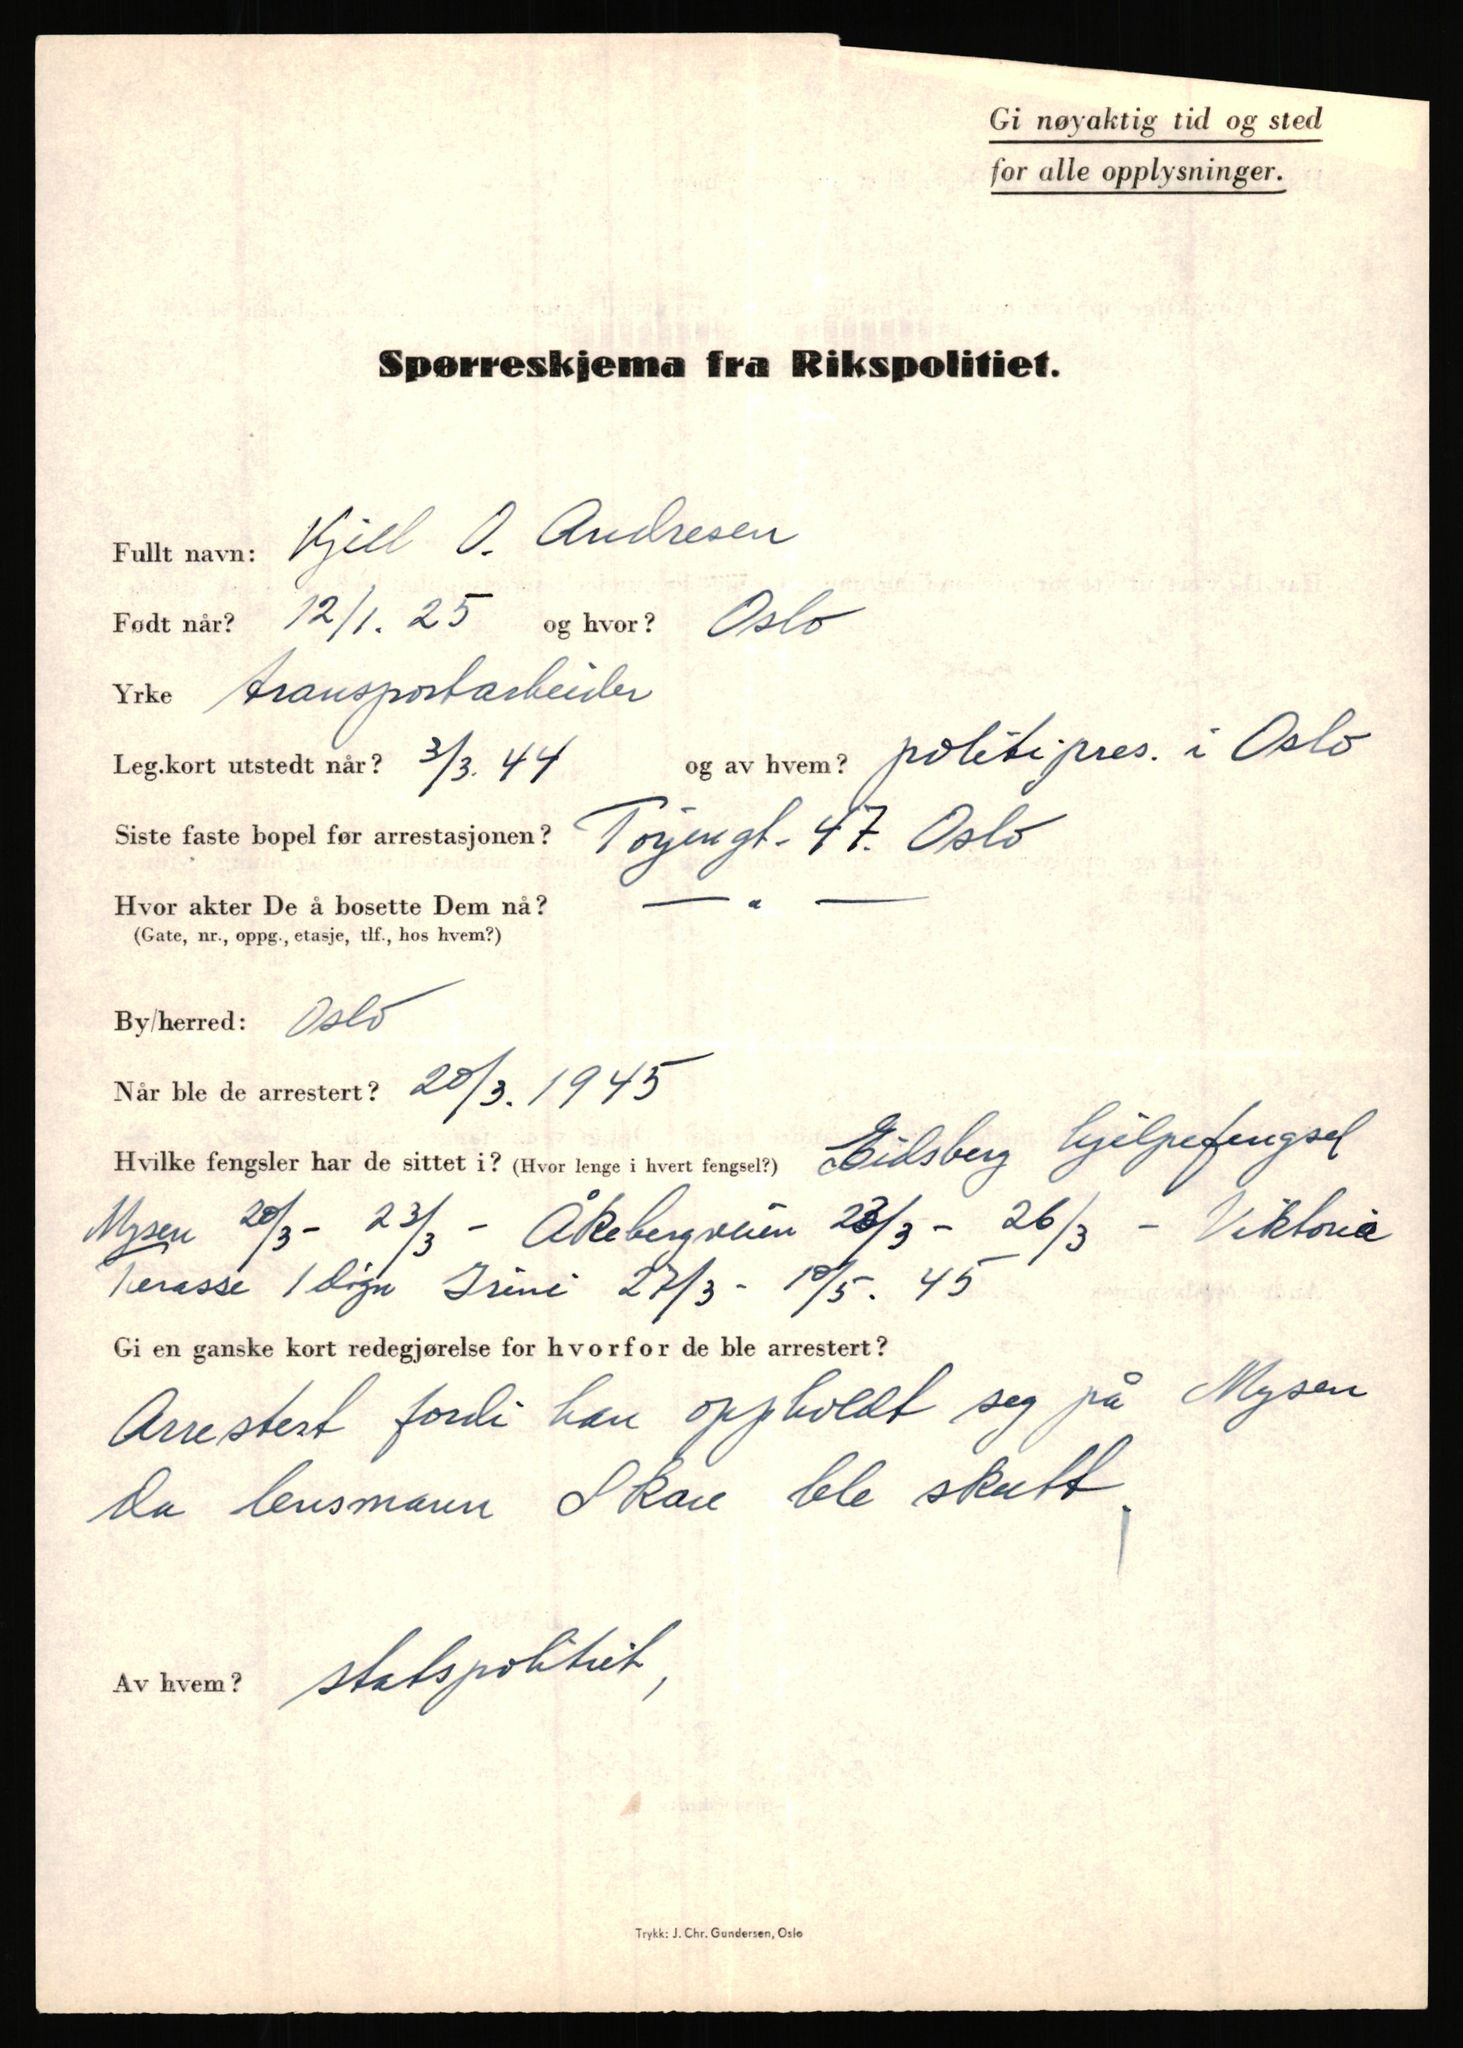 Gi nøyaktig tid og sted
for alle opplysninger.
Spørreskjema fra Rikspolitiet.
Fullt navn: Kjell O. Andresen
Født når? 12/1. 25 og hvor? Oslo
Yrke transportarbeider
Leg.kort utstedt når? 3/3. 44 og av hvem? politipres. i Oslo
Siste faste bopel før arrestasjonen? Töyengt. 47. Oslo
Hvor akter De å bosette Dem nå? — " —
(Gate, nr., oppg., etasje, tlf., hos hvem?)
By/herred: Oslo
Når ble de arrestert? 20/3. 1945
Hvilke fengsler har de sittet i? (Hvor lenge i hvert fengsel?) Eidsberg hjelpefengsel
Mysen 20/3 - 23/3 - Åkebergveien 23/3 - 26/3 - Viktoria
Terasse 1 døgn Grini 27/3 - 10/5. 45
Gi en ganske kort redegjørelse for hvorfor de ble arrestert?
Arrestert fordi han oppholdt seg på Mysen
da lensmann Skau ble skutt
Av hvem? statspolitiet,
Trykk: J. Chr. Gundersen, Oslo